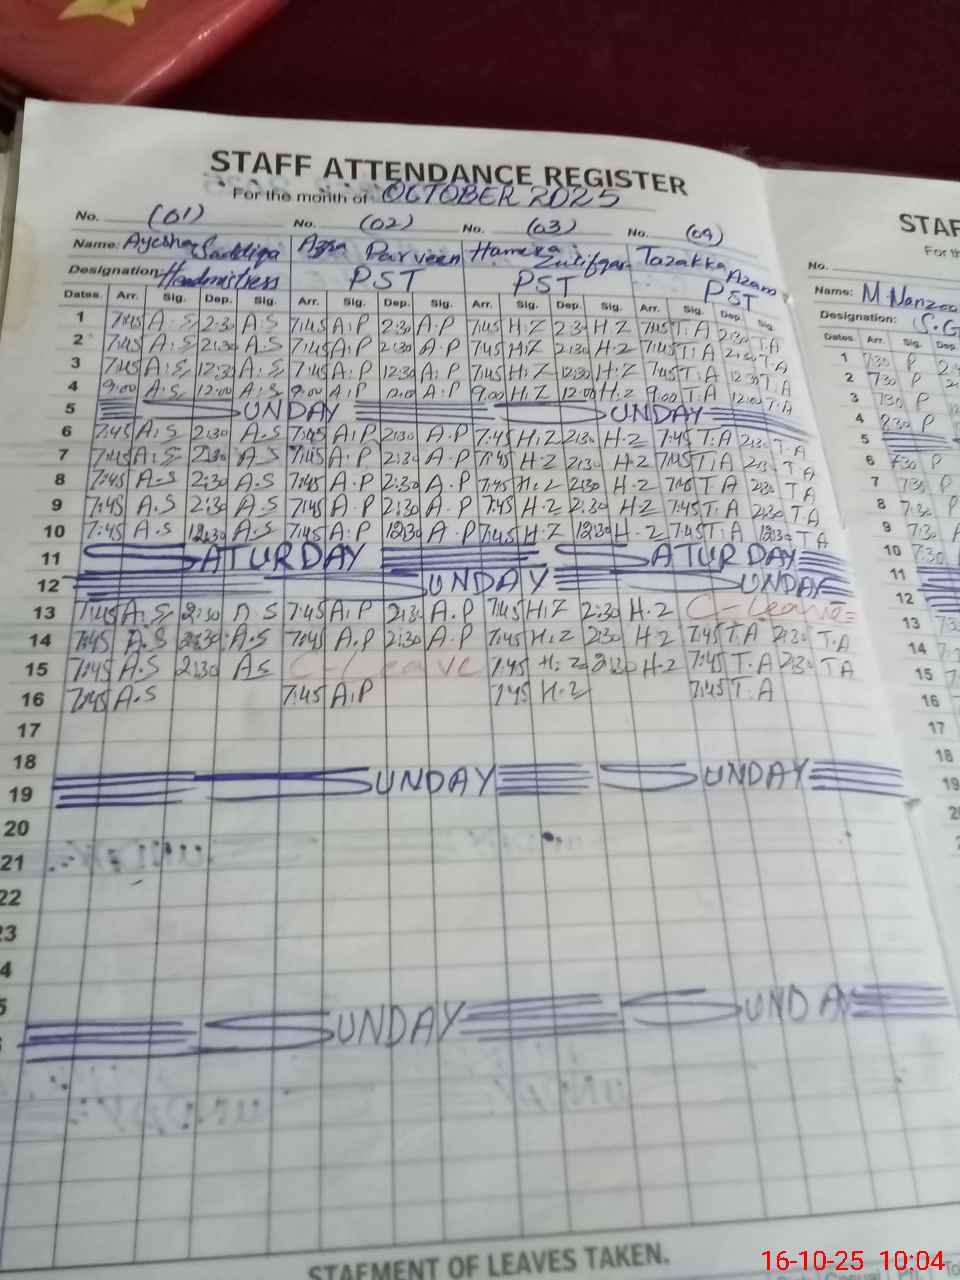 STAFF ATTENDANCE REGISTER
For the month of OCTOBER 2025
No. (01) No. (02) No. (03) No. (04)
Name: Ayesha Saddiqa Azra Parveen Hamera Zulifqar Tazakka Azam
Designation: Headmistress PST PST PST
Dates. Arr. Sig. Dep. Sig. Arr. Sig. Dep. Sig. Arr. Sig. Dep. Sig. Arr. Sig. Dep. Sig.
1 7:45 A.S 2:30 A.S 7:45 A.P 2:30 A.P 7:45 H.Z 2:30 H.Z 7:45 T.A 2:30 T.A
2 7:45 A.S 2:30 A.S 7:45 A.P 2:30 A.P 7:45 H.Z 2:30 H.Z 7:45 T.A 2:30 T.A
3 7:45 A.S 12:30 A.S 7:45 A.P 12:30 A.P 7:45 H.Z 12:30 H.Z 7:45 T.A 12:30 T.A
4 9:00 A.S 12:00 A.S 9:00 A.P 12:0 A.P 9:00 H.Z 12:00 H.Z 9:00 T.A 12:00 T.A
5 SUNDAY SUNDAY
6 7:45 A.S 2:30 A.S 7:45 A.P 2:30 A.P 7:45 H.Z 2:30 H.Z 7:45 T.A 2:30 T.A
7 7:45 A.S 2:30 A.S 7:45 A.P 2:30 A.P 7:45 H.Z 2:30 H.Z 7:45 T.A 2:30 T.A
8 7:45 A.S 2:30 A.S 7:45 A.P 2:30 A.P 7:45 H.Z 2:30 H.Z 7:45 T.A 2:30 T.A
9 7:45 A.S 2:30 A.S 7:45 A.P 2:30 A.P 7:45 H.Z 2:30 H.Z 7:45 T.A 2:30 T.A
10 7:45 A.S 12:30 A.S 7:45 A.P 12:30 A.P 7:45 H.Z 12:30 H.Z 7:45 T.A 12:30 T.A
11 SATURDAY SATURDAY
12 SUNDAY SUNDAY
13 7:45 A.S 2:30 A.S 7:45 A.P 2:30 A.P 7:45 H.Z 2:30 H.Z C-Leave
14 7:45 A.S 2:30 A.S 7:45 A.P 2:30 A.P 7:45 H.Z 2:30 H.Z 7:45 T.A 2:30 T.A
15 7:45 A.S 2:30 AS C-Leave 7:45 H.Z 2:30 H.Z 7:45 T.A 2:30 TA
16 7:45 A.S 7:45 A.P 7:45 H.Z 7:45 T.A
17
18
19 SUNDAY SUNDAY
20
21
22
23
SUNDAY SUNDAY
STAEMENT OF LEAVES TAKEN.
No.
Name:
Designation: S.
Dates Arr. Sig. Dep.
1 7:30 P
2 7:30 P
3 7:30 P
4 8:30 P
5
6 7:30 P
7 7:30 P
8 7:30 P
9 7:30
10 7:30
11
12
13
14
15
16
17
18
19
16-10-25 10:04